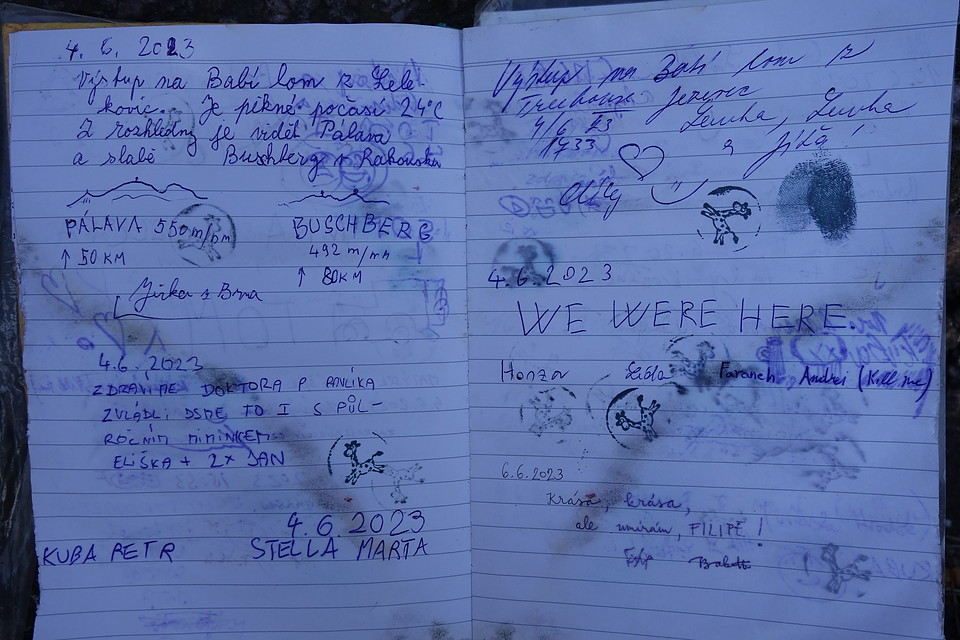 4. 6. 2023
Výstup na Babí lom z Lele-
kovic. Je pěkné počasí 24°C
Z rozhledny je vidět Pálava
a slabě Buschberg v Rakousku
PÁLAVA 550 m/nm
↑ 50 KM
BUSCHBERG
492 m/nm
↑ 80KM
Jirka z Brna
4.6.2023
ZDRAVÍME DOKTORA P. PAVLÍKA
ZVLÁDLI JSME TO I S PŮL-
ROČNÍM MIMINKEM
ELIŠKA + 2x JAN
4.6.2023
KUBA PETR STELLA MARTA
Výstup na Babí lom z
4/6 23
1733
Lenka, Lenka
a Jiří!
4.6.2023
WE WERE HERE.
Honza Faraneh Andrei (Kill me)
6.6.2023
Krása, krása,
ale umírám, FILIPE!